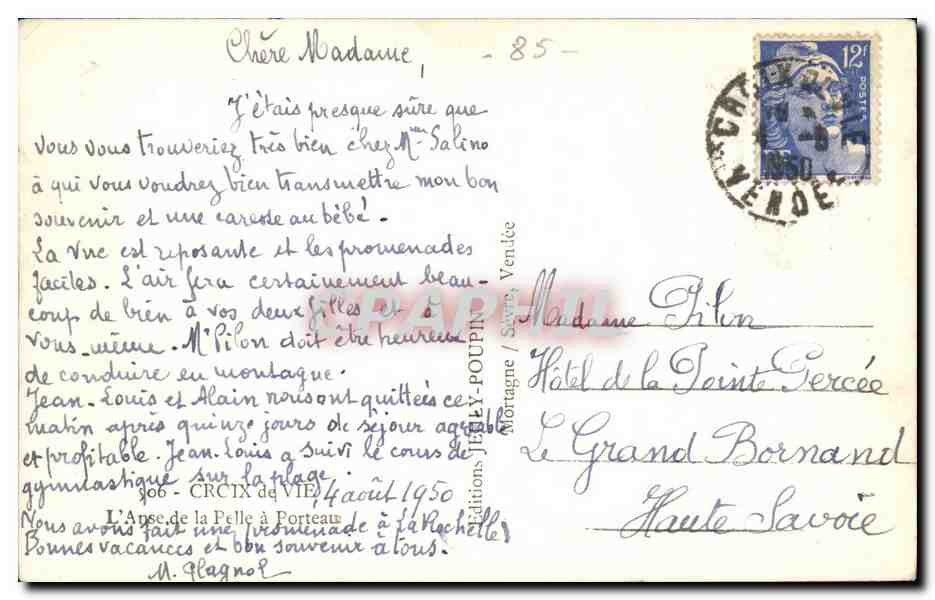 Chère Madame,
- 85 -
J'étais presque sûre que
vous vous trouveriez très bien chez Mme Salino
à qui vous voudrez bien transmettre mon bon
souvenir et une caresse au bébé.
La vue est reposante et les promenades
faciles. L'air fera certainement beau-
coup de bien à vos deux filles et à
vous-même. Mr Pilon doit être heureux
de conduire en montagne.
Jean-Louis et Alain nous ont quittées ce
matin après quinze jours de séjour agréable
et profitable. Jean-Louis a suivi le cours de
gymnastique sur la plage.
906 - CROIX de VIE
4 août 1950
L'Anse de la Pelle à Porteau
Nous avons fait une promenade à La Rochelle
Bonnes vacances et bon souvenir à tous.
M. Plagnol
Editions JEHLY-POUPIN
Mortagne / Sèvre, Vendée
12F
POSTES
CROIX DE VIE
1950
VENDEE
Madame Pilon
Hôtel de la Pointe Percée
Le Grand Bornand
Haute Savoie
CPAPHIL